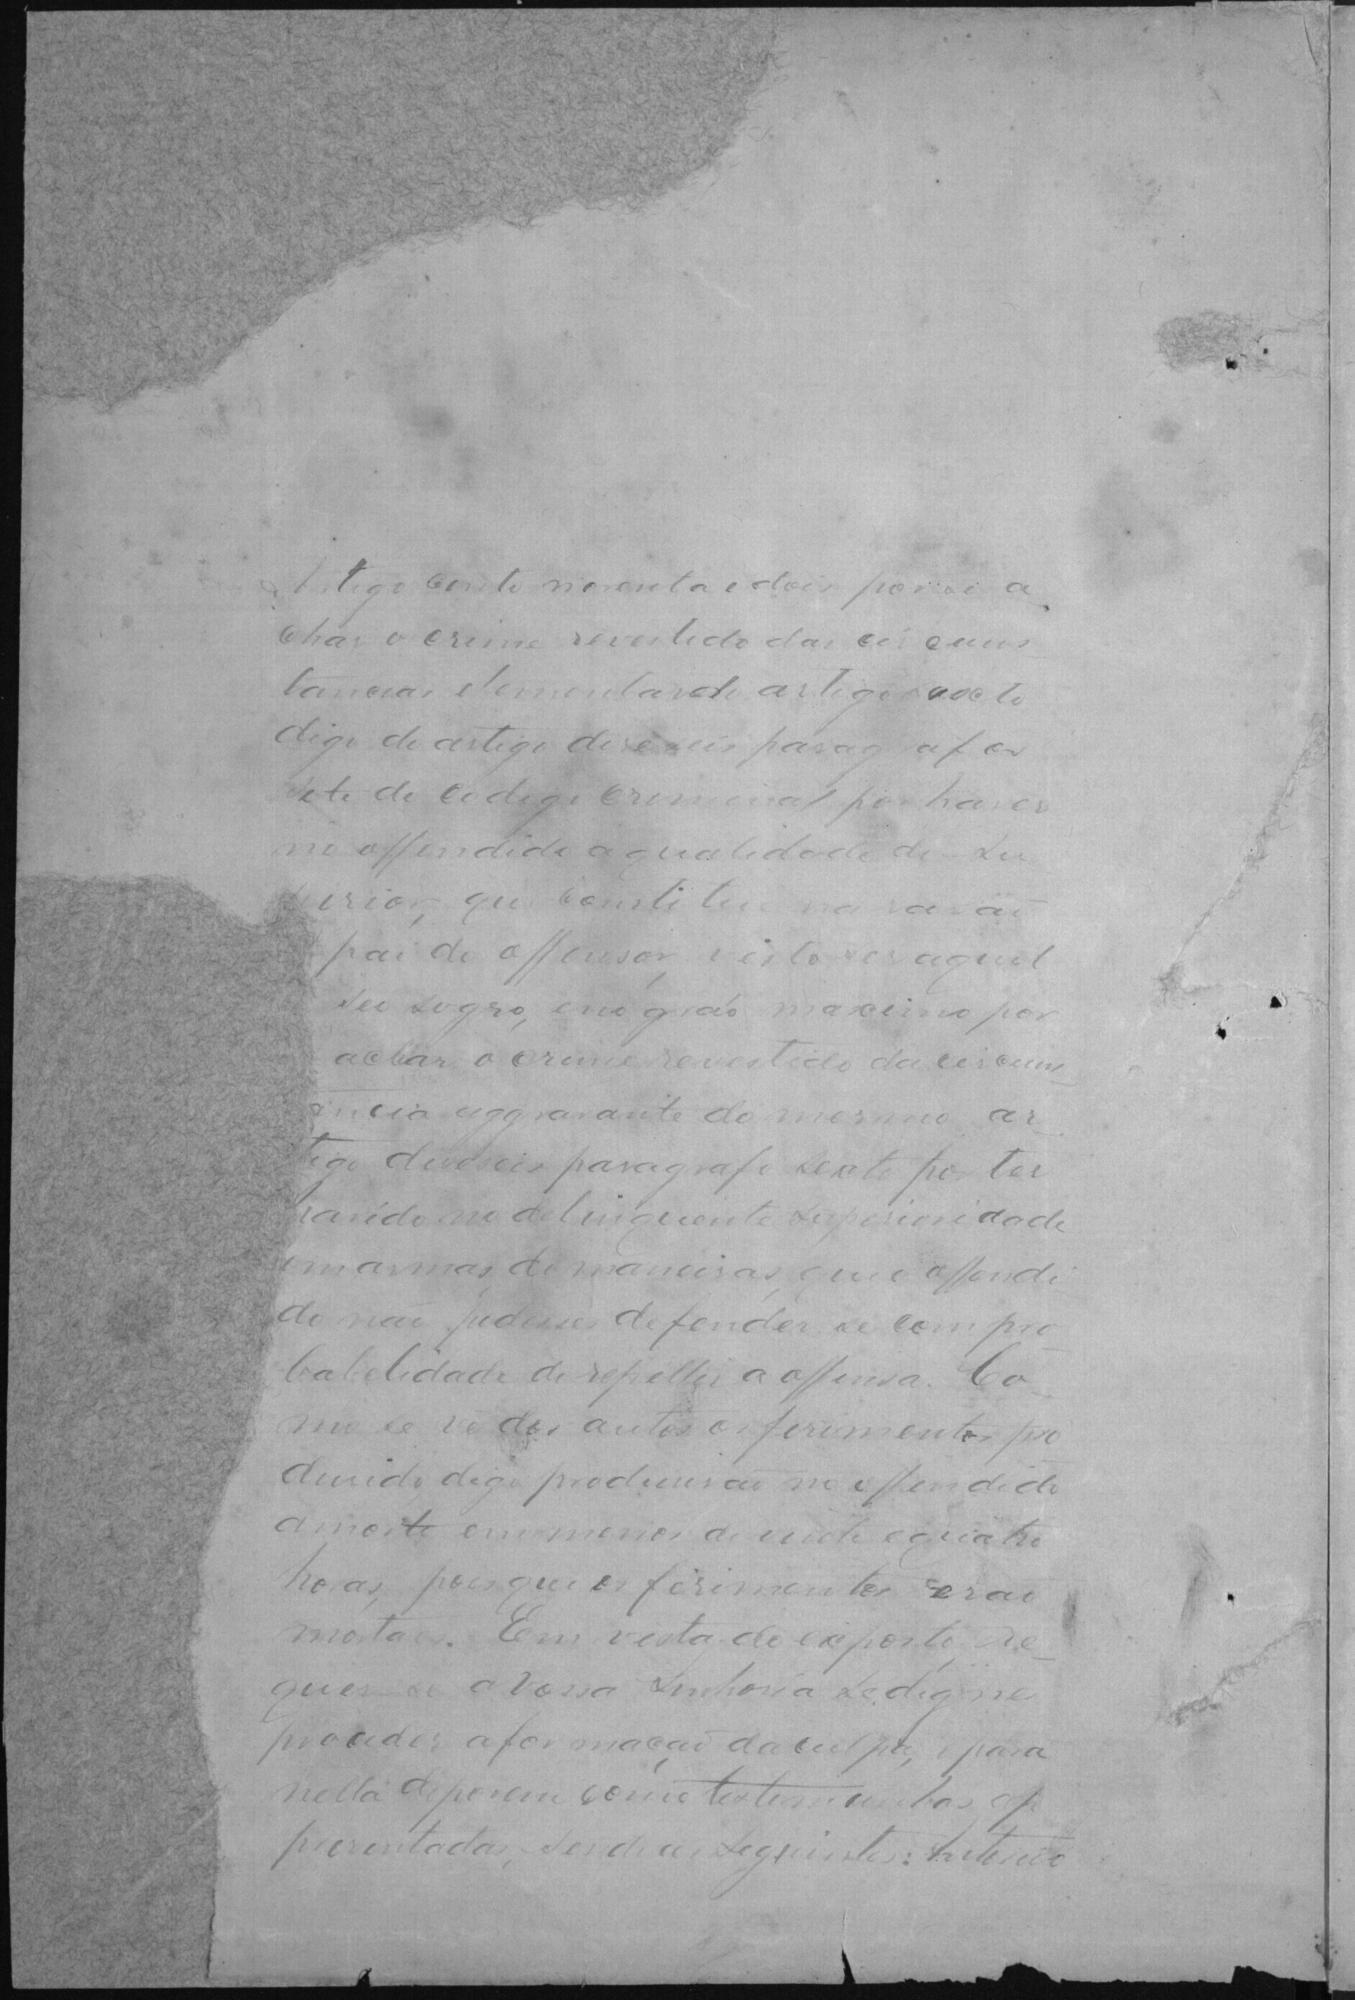 Artigo cento noventa e dois por se a
char o crime revestido das circuns
tancias elementar do artigo
digo do artigo deseseis paragrafo
sete do codigo criminal por haver
no offendido a qualidade de Su
perior, que constitue na rasão
pai do offensor, visto ser aquel
seu sogro, e no gráo maximo por
achar o crime revestido da circuns
tancia aggravante do mesmo ar
tigo deseseis paragrafo sexto por ter
havido no delinquente superioridade
em armas de maneiras, que o offendi
do não pudesse defender se com pro
babelidade de repellir a offensa. Co
mo se vê dos autos os ferimentos pro
dusido, digo produsirão no offendido
a morte em menos de vinte e quatro
horas, pois que os ferimentos erão
mortais. Em vista do exposto, re
quer-se a Vossa Senhoria se digne
proceder a formação da culpa, e para
nella deporem como testemunhas ap
presentadas, sendo as seguintes: Antonio